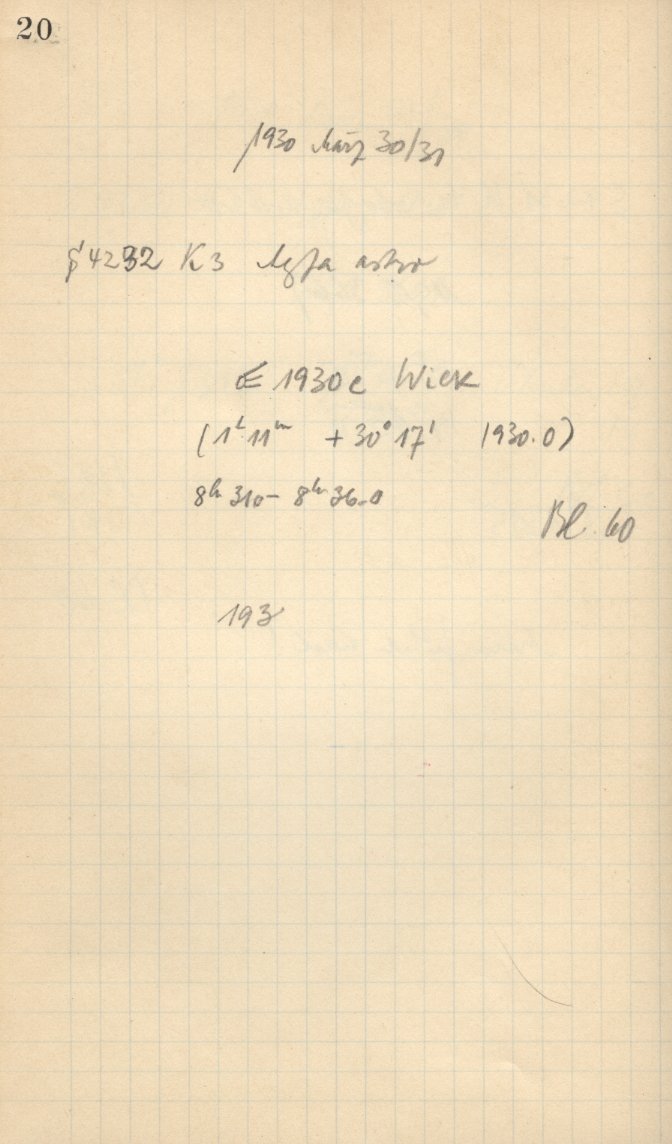 20
1930 März 30/31
4232 K3 Agfa astro
1930c Wilk
(1ʰ 11ᵐ +30° 17' 1930.0)
8ʰ 31.0 – 8ʰ 36.0
Bl. 60
193